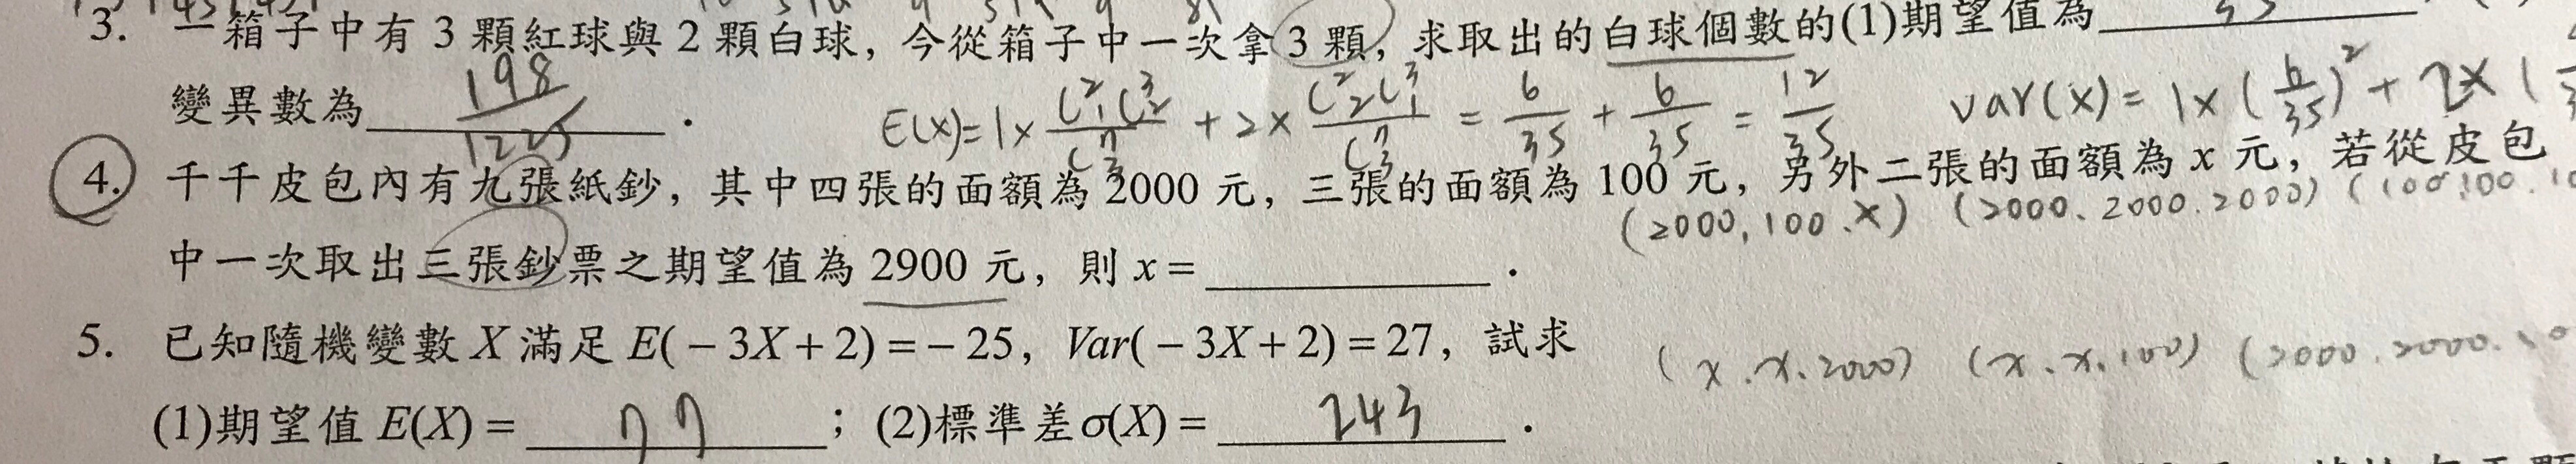 3. 一箱子中有 3 顆紅球與 2 顆白球，今從箱子中一次拿 3 顆，求取出的白球個數的(1)期望值為
變異數為 198/1225 .
E(X)=1× C²₁C³₂/C⁷₃ + 2× C²₂C³₁/C⁷₃ = 6/35 + 6/35 = 12/35
var(x)= 1×(6/35)² + 2×(
4. 千千皮包內有九張紙鈔，其中四張的面額為 2000 元，三張的面額為 100 元，另外二張的面額為 x 元，若從皮包
(2000, 100、x) (2000、2000、2000) (100、100、
中一次取出三張鈔票之期望值為 2900 元，則 x = .
5. 已知隨機變數 X 滿足 E( − 3X + 2) = − 25，Var( − 3X + 2) = 27，試求
(x、x、2000) (x、x、100) (2000、2000、
(1)期望值 E(X) = 77 ；(2)標準差 σ(X) = 243 .